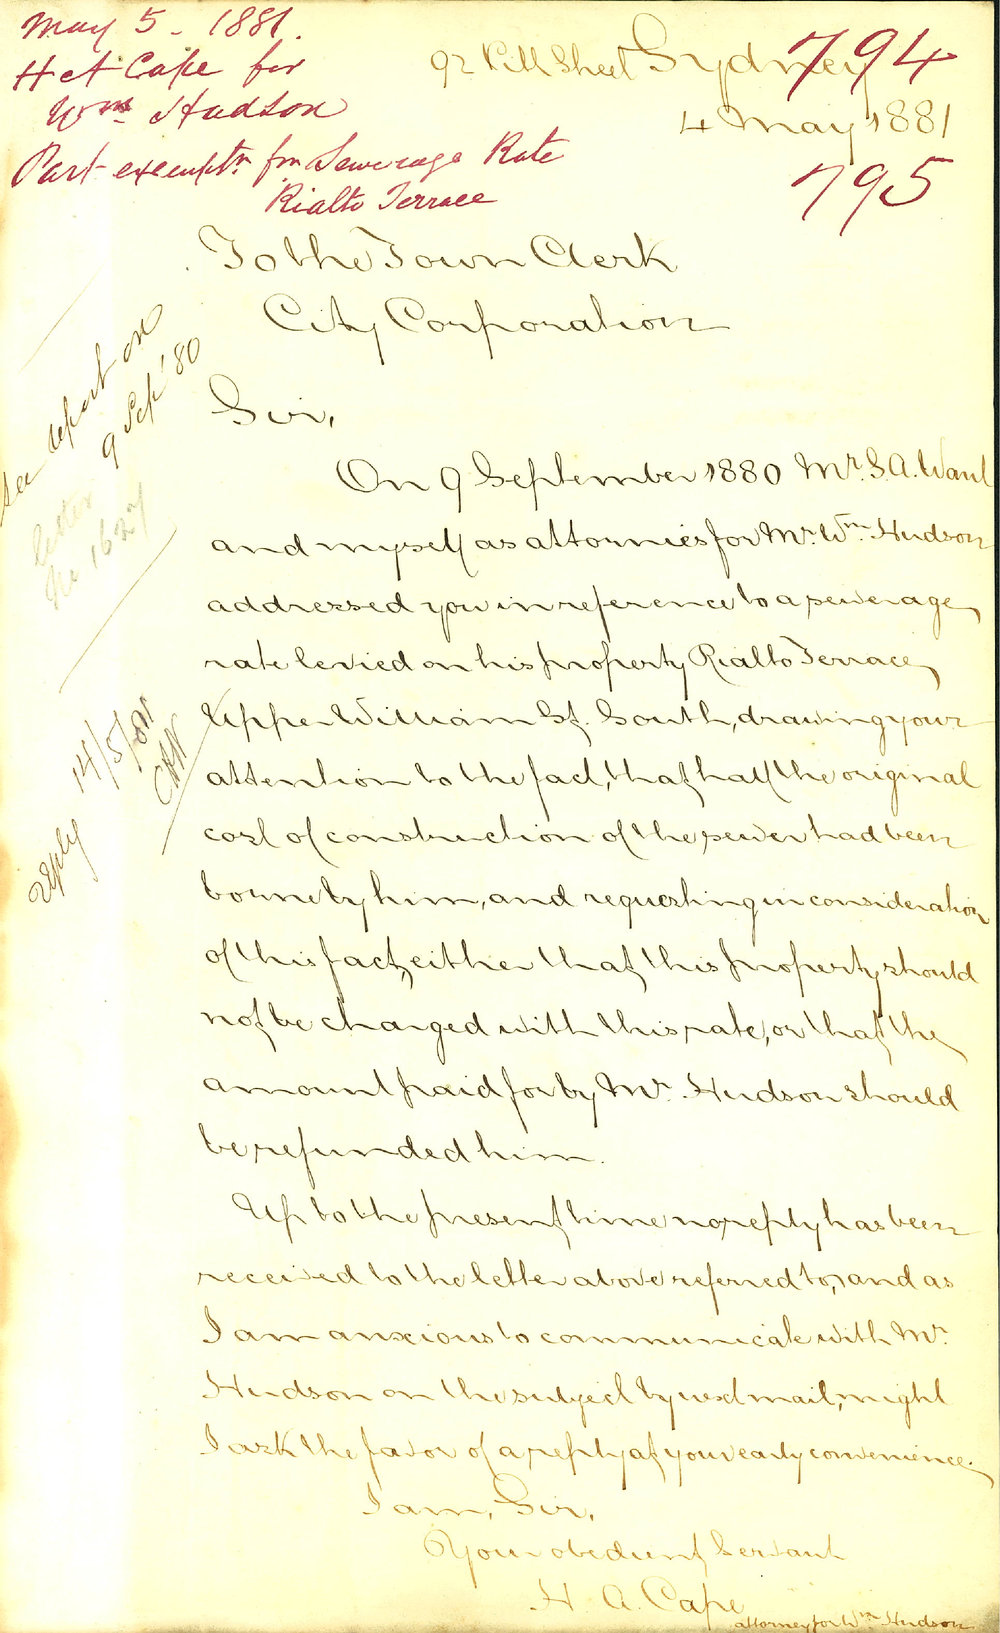 May 5 - 1881.
H A Cape for
Wm. Hudson
Part exemptn fm Sewerage Rate
Rialto Terrace
794
795
92 Pitt Street Sydney
4 May 1881
To the Town Clerk
City Corporation
Sir,
On 9 September 1880 Mr. S. A. Want
and myself as attornies for Mr. Wm. Hudson
addressed you in reference to a sewerage
rate levied on his property Rialto Terrace,
Upper William St. South, drawing your
attention to the fact, that half the original
cost of construction of the sewer had been
borne by him, and requesting in consideration
of this fact, either that this property should
not be charged with this rate, or that the
amount paid for by Mr. Hudson should
be refunded him.
Up to the present time no reply has been
received to the letter above referred to, and as
I am anxious to communicate with Mr.
Hudson on the subject by next mail, might
I ask the favor of a reply at your early convenience.
I am, Sir,
Your obedient Servant
H. A. Cape
attorney for Wm. Hudson
See report on
9 Sep '80
letter
No 1627
reply 14/5/81